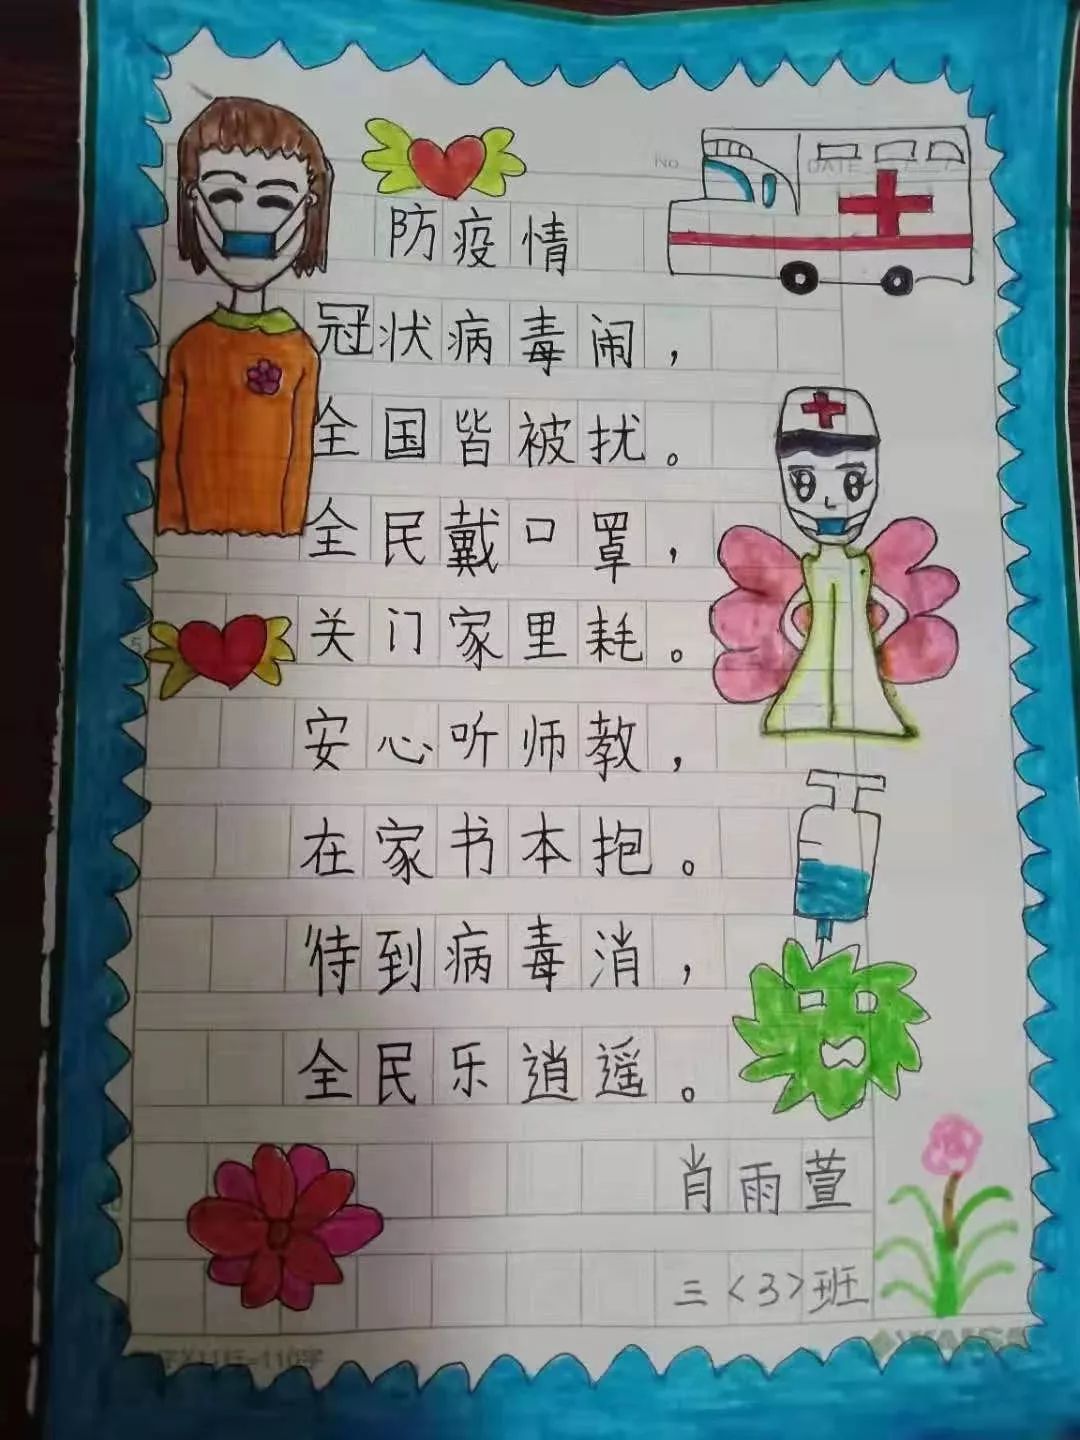 No.
DATE
防疫情
冠状病毒闹，
全国皆被扰。
全民戴口罩，
关门家里耗。
安心听师教，
在家书本抱。
待到病毒消，
全民乐逍遥。
肖雨萱
三<3>班